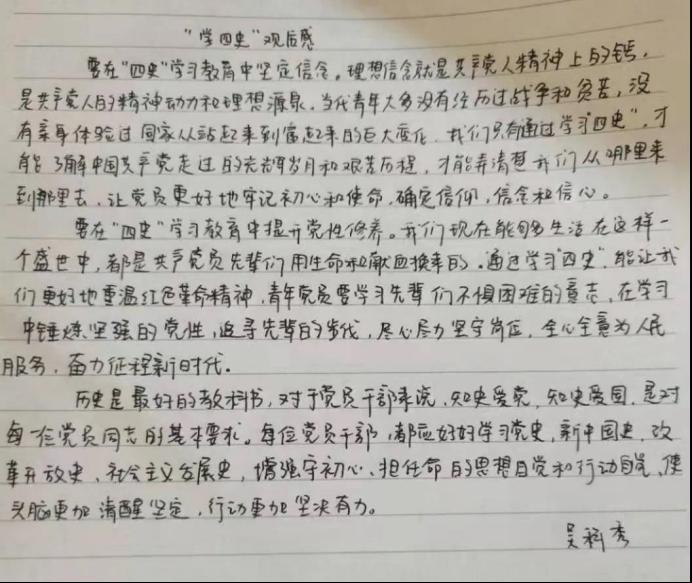 “学四史”观后感
要在“四史”学习教育中坚定信念。理想信念就是共产党人精神上的钙，
是共产党人的精神动力和理想源泉，当代青年大多没有经历过战争和贫苦，没
有亲身体验过国家从站起来到富起来的巨大变化，我们只有通过学习“四史”，才
能了解中国共产党走过的光辉岁月和艰苦历程，才能弄清楚我们从哪里来
到哪里去，让党员更好地牢记初心和使命，确定信仰，信念和信心。
要在“四史”学习教育中提升党性修养。我们现在能够生活在这样一
个盛世中，都是共产党员先辈们用生命和献血换来的。通过学习“四史”，能让我
们更好地重温红色革命精神，青年党员要学习先辈们不惧困难的意志，在学习
中锤炼坚强的党性，追寻先辈的步伐，尽心尽力坚守岗位，全心全意为人民
服务，奋力征程新时代。
历史是最好的教科书，对于党员干部来说，知史爱党，知史爱国，是对
每一位党员同志的基本要求。每位党员干部，都应好好学习党史，新中国史，改
革开放史、社会主义发展史，增强守初心、担任命的思想自觉和行动自觉，使
头脑更加清醒坚定，行动更加坚决有力。
吴科秀